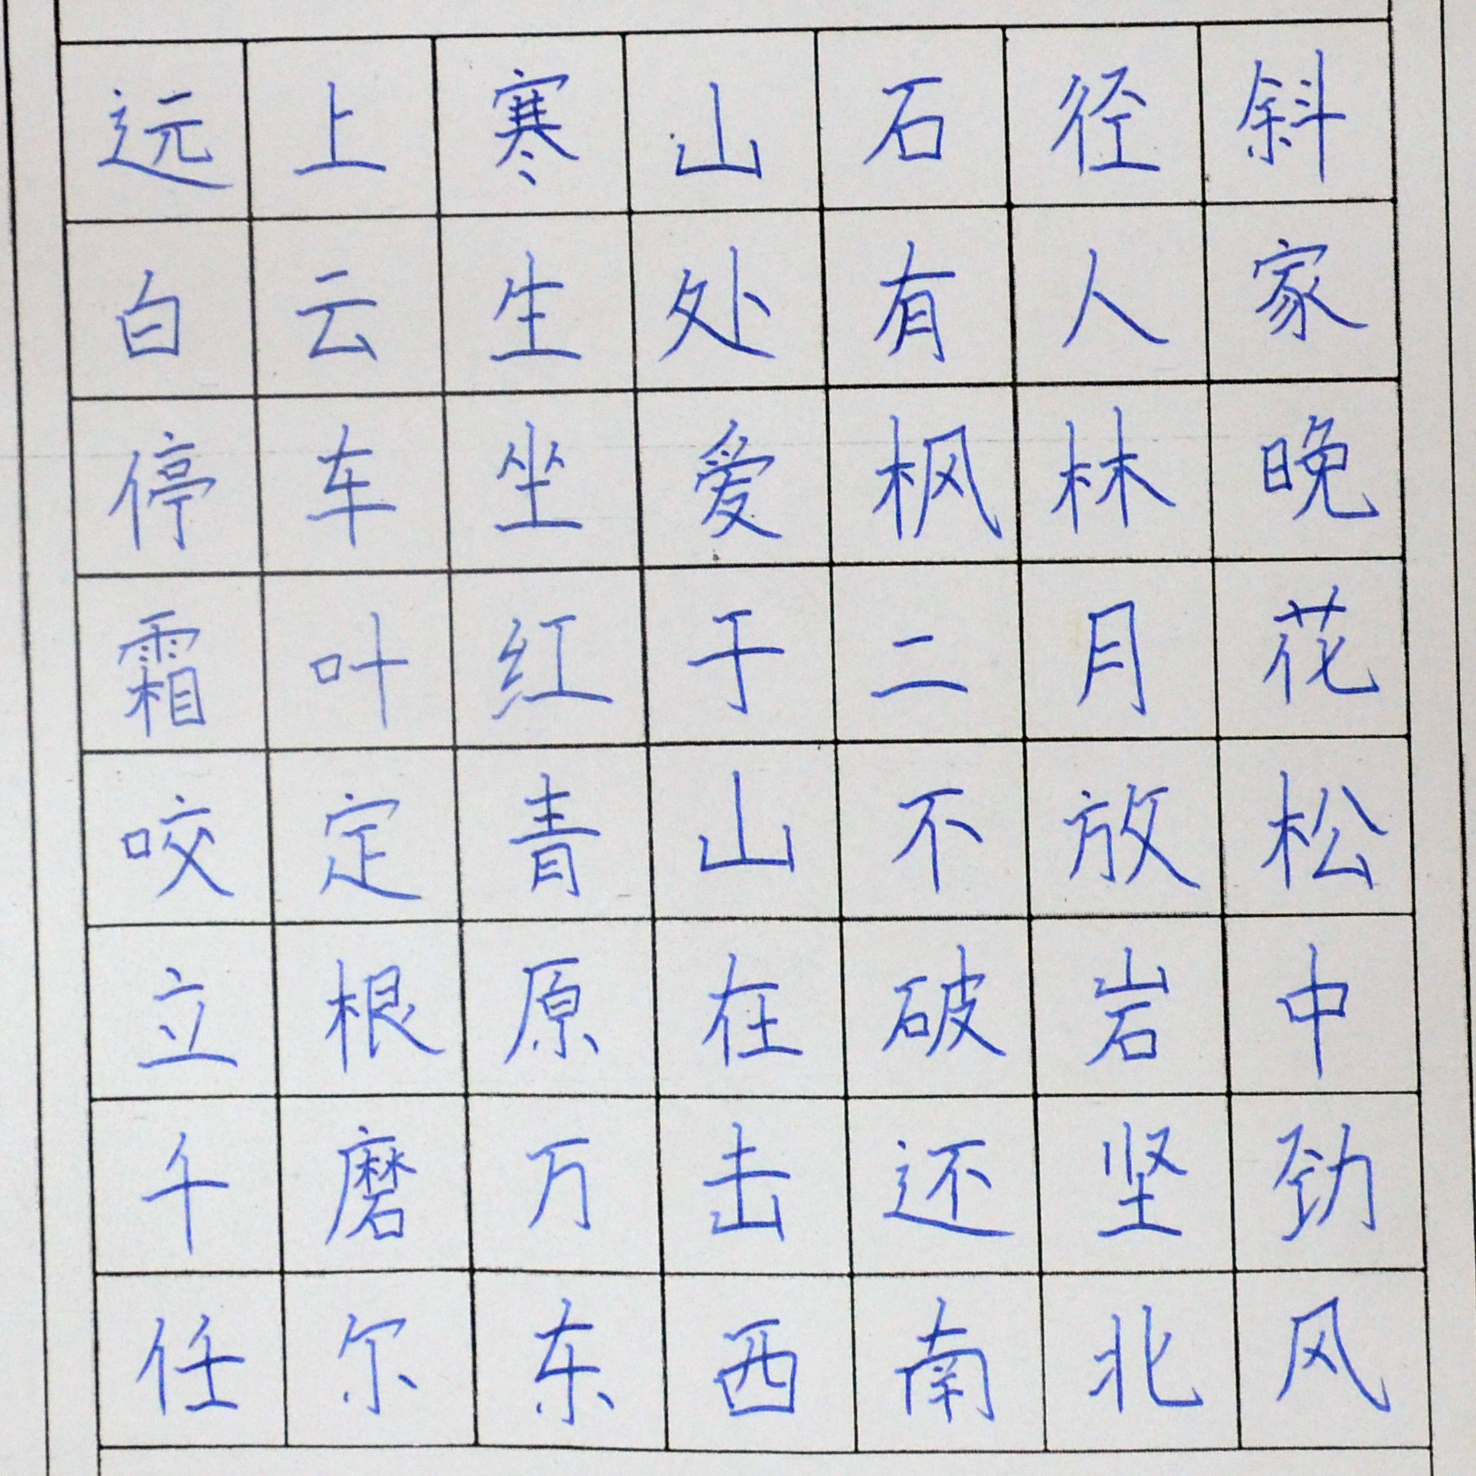 远上寒山石径斜
白云生处有人家
停车坐爱枫林晚
霜叶红于二月花
咬定青山不放松
立根原在破岩中
千磨万击还坚劲
任尔东西南北风